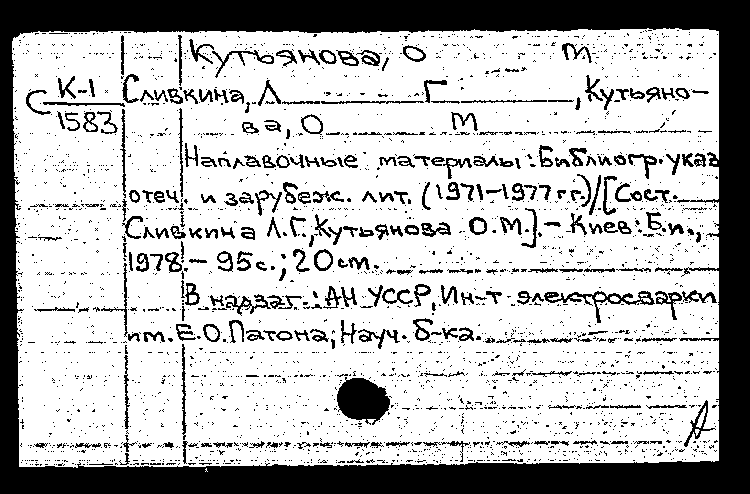 Кутьянова, О М
С К-1 1583
Сливкина, Л Г , Кутьяно-
ва, О М
Наплавочные материалы : Библиогр. указ
отеч. и зарубеж. лит. (1971-1977 гг.)/[Сост.
Сливкина Л.Г., Кутьянова О.М.]. - Киев : Б.и.,
1978. - 95 с.; 20 cm.
В надзаг.: АН УССР, Ин-т электросварки
им. Е.О. Патона, Науч. б-ка.
А